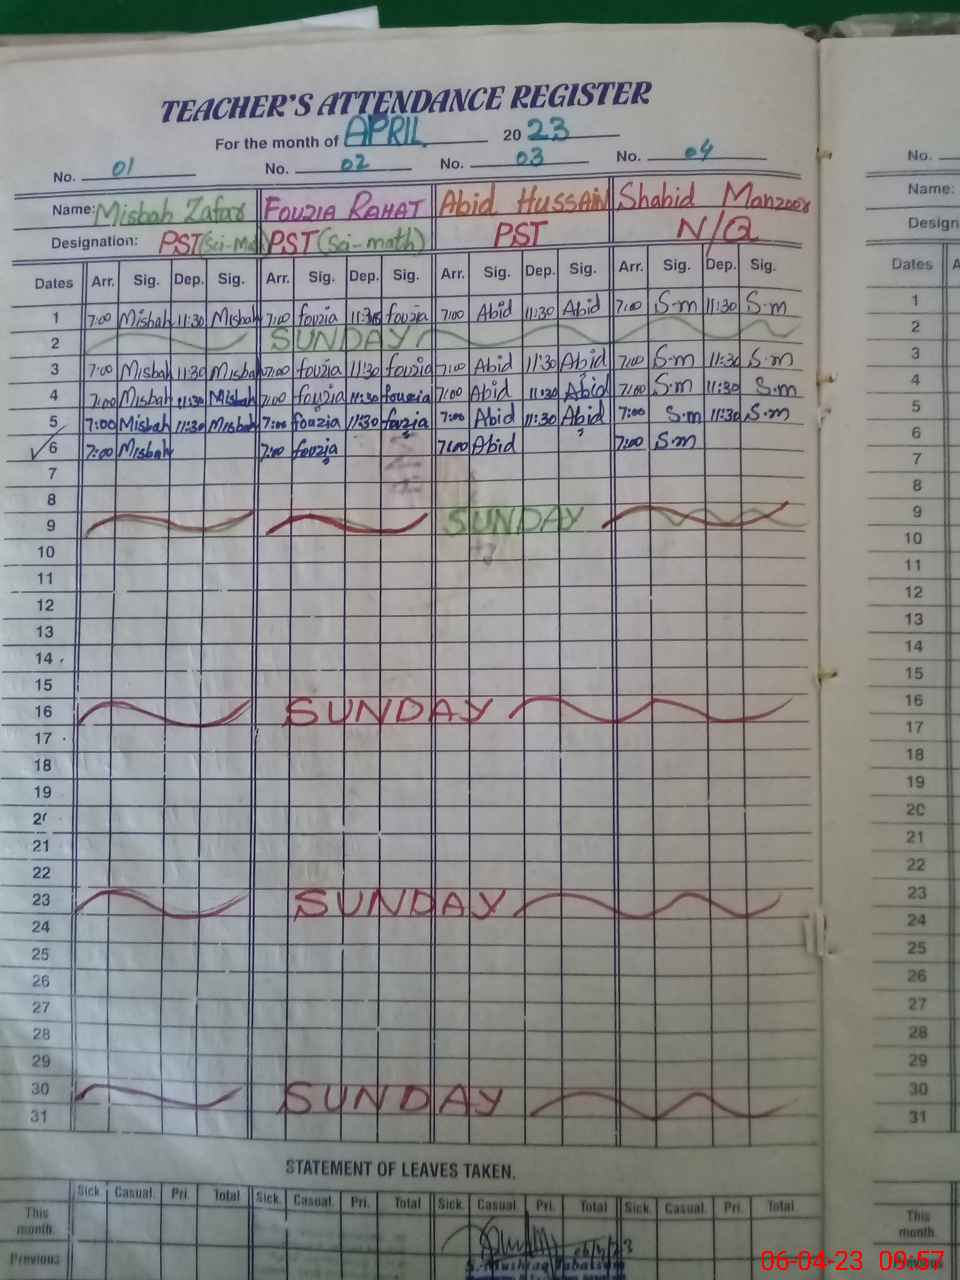 TEACHER'S ATTENDANCE REGISTER
For the month of APRIL 2023
No. 01 No. 02 No. 03 No. 04 No.
Name: Misbah Zafar FOUZIA RAHAT Abid HUSSAIN Shahid Manzoor Name:
Designation: PST (Sci-Ma PST (Sci-math) PST N/Q Design
Dates Arr. Sig. Dep. Sig. Arr. Sig. Dep. Sig. Arr. Sig. Dep. Sig. Arr. Sig. Dep. Sig. Dates
1 7:00 Misbah 11:30 Misbah 7:00 fouzia 11:30 fouzia 7:00 Abid 11:30 Abid 7:00 S.m 11:30 S.m 1
2 SUNDAY 2
3 7:00 Misbah 11:30 Misbah 7:00 fouzia 11:30 fouzia 7:00 Abid 11:30 Abid 7:00 S.m 11:30 S.m 3
4 7:00 Misbah 11:30 Misbah 7:00 fouzia 11:30 fouzia 7:00 Abid 11:30 Abid 7:00 S.m 11:30 S.m 4
5 7:00 Misbah 11:30 Misbah 7:00 fouzia 11:30 fouzia 7:00 Abid 11:30 Abid 7:00 S.m 11:30 S.m 5
6 7:00 Misbah 7:00 fouzia 7:00 Abid 7:00 S.m 6
7 7
8 8
9 SUNDAY 9
10 10
11 11
12 12
13 13
14 14
15 15
16 SUNDAY 16
17 17
18 18
19 19
20 20
21 21
22 22
23 SUNDAY 23
24 24
25 25
26 26
27 27
28 28
29 29
30 SUNDAY 30
31 31
STATEMENT OF LEAVES TAKEN.
Sick. Casual. Pri. Total Sick. Casual. Pri. Total Sick. Casual. Pri. Total Sick. Casual. Pri. Total
This month. This month.
06/4/23
Previous Previous
06-04-23 09:57